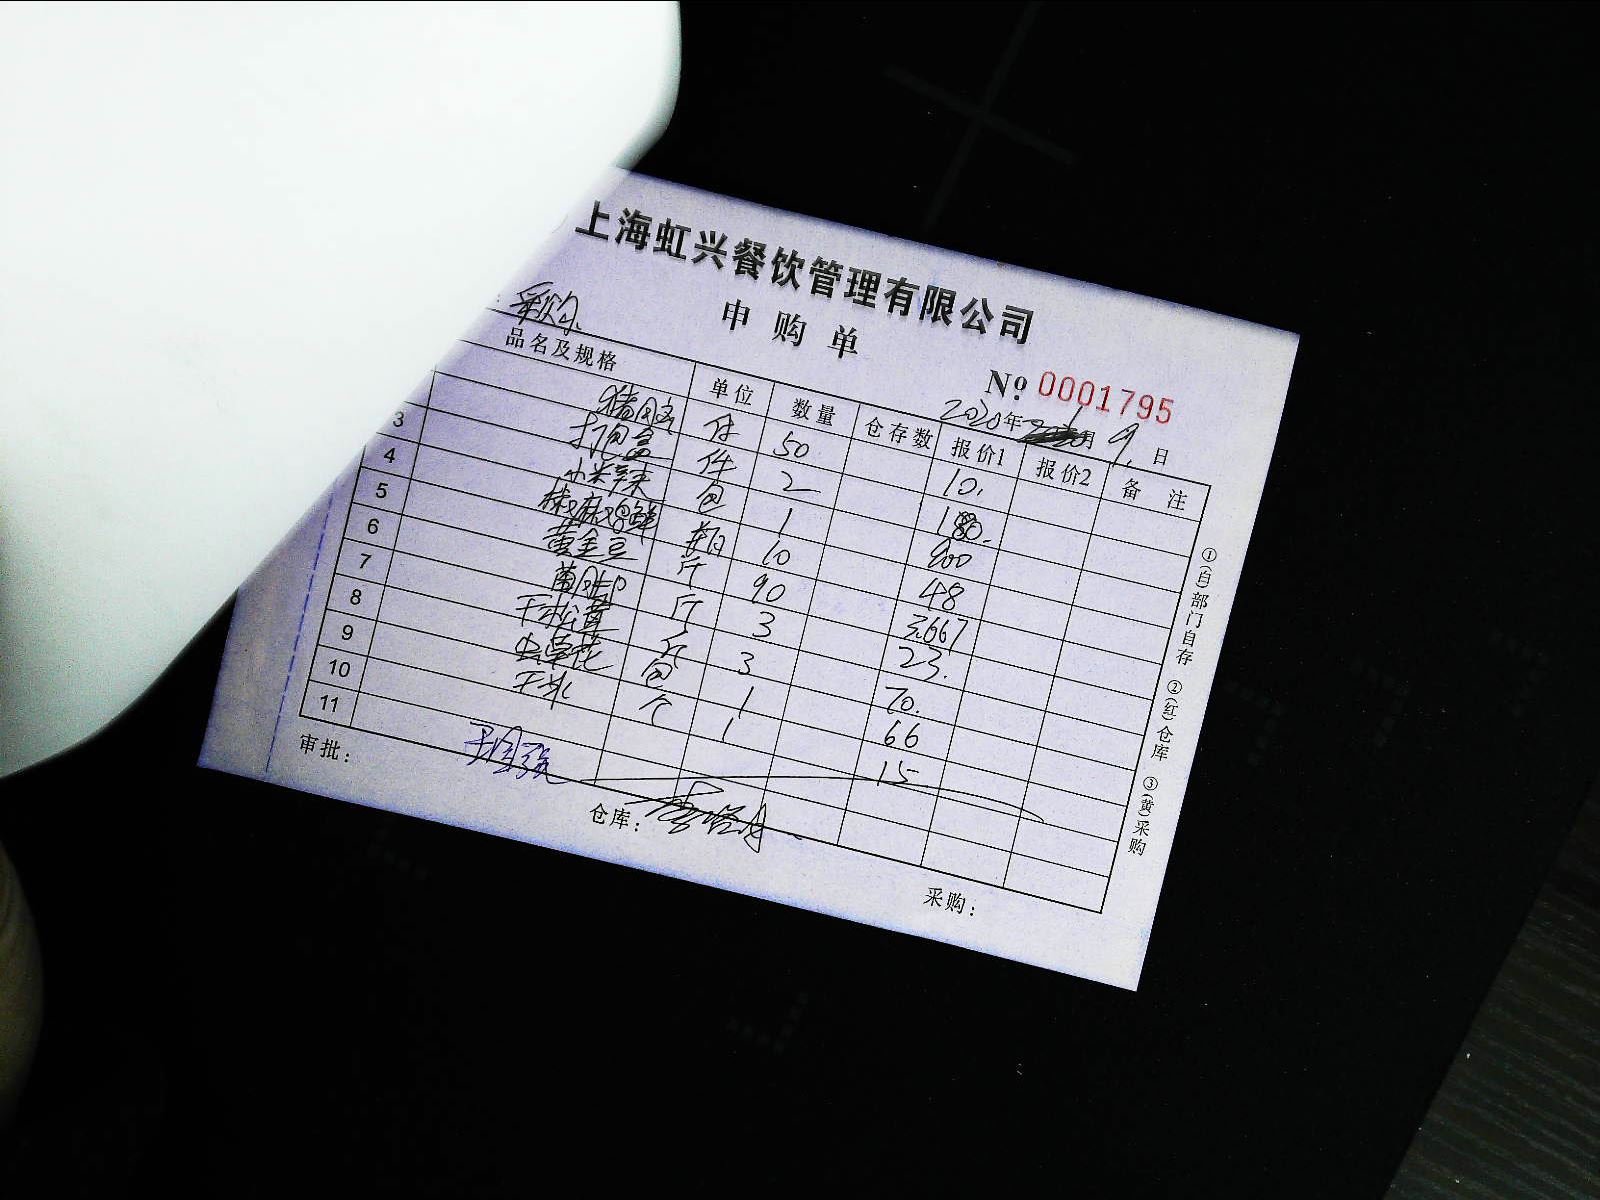 上海虹兴餐饮管理有限公司
申购单
№ 0001795
: 采购
2020年 1月 9日
品名及规格 单位 数量 仓存数 报价1 报价2 备注
件 50 10.
3 打包盒 件 2 180.
4 小米辣 包 1 900
5 椒麻鸡鲜 瓶 10 48
6 黄金豆 斤 90 3.667
7 斤 3 23.
8 干松茸 斤 3 70.
9 虫草花 包 1 66
10 干冰 个 1 15
11
审批:
仓库:
采购:
①(白)部门自存 ②(红)仓库 ③(黄)采购